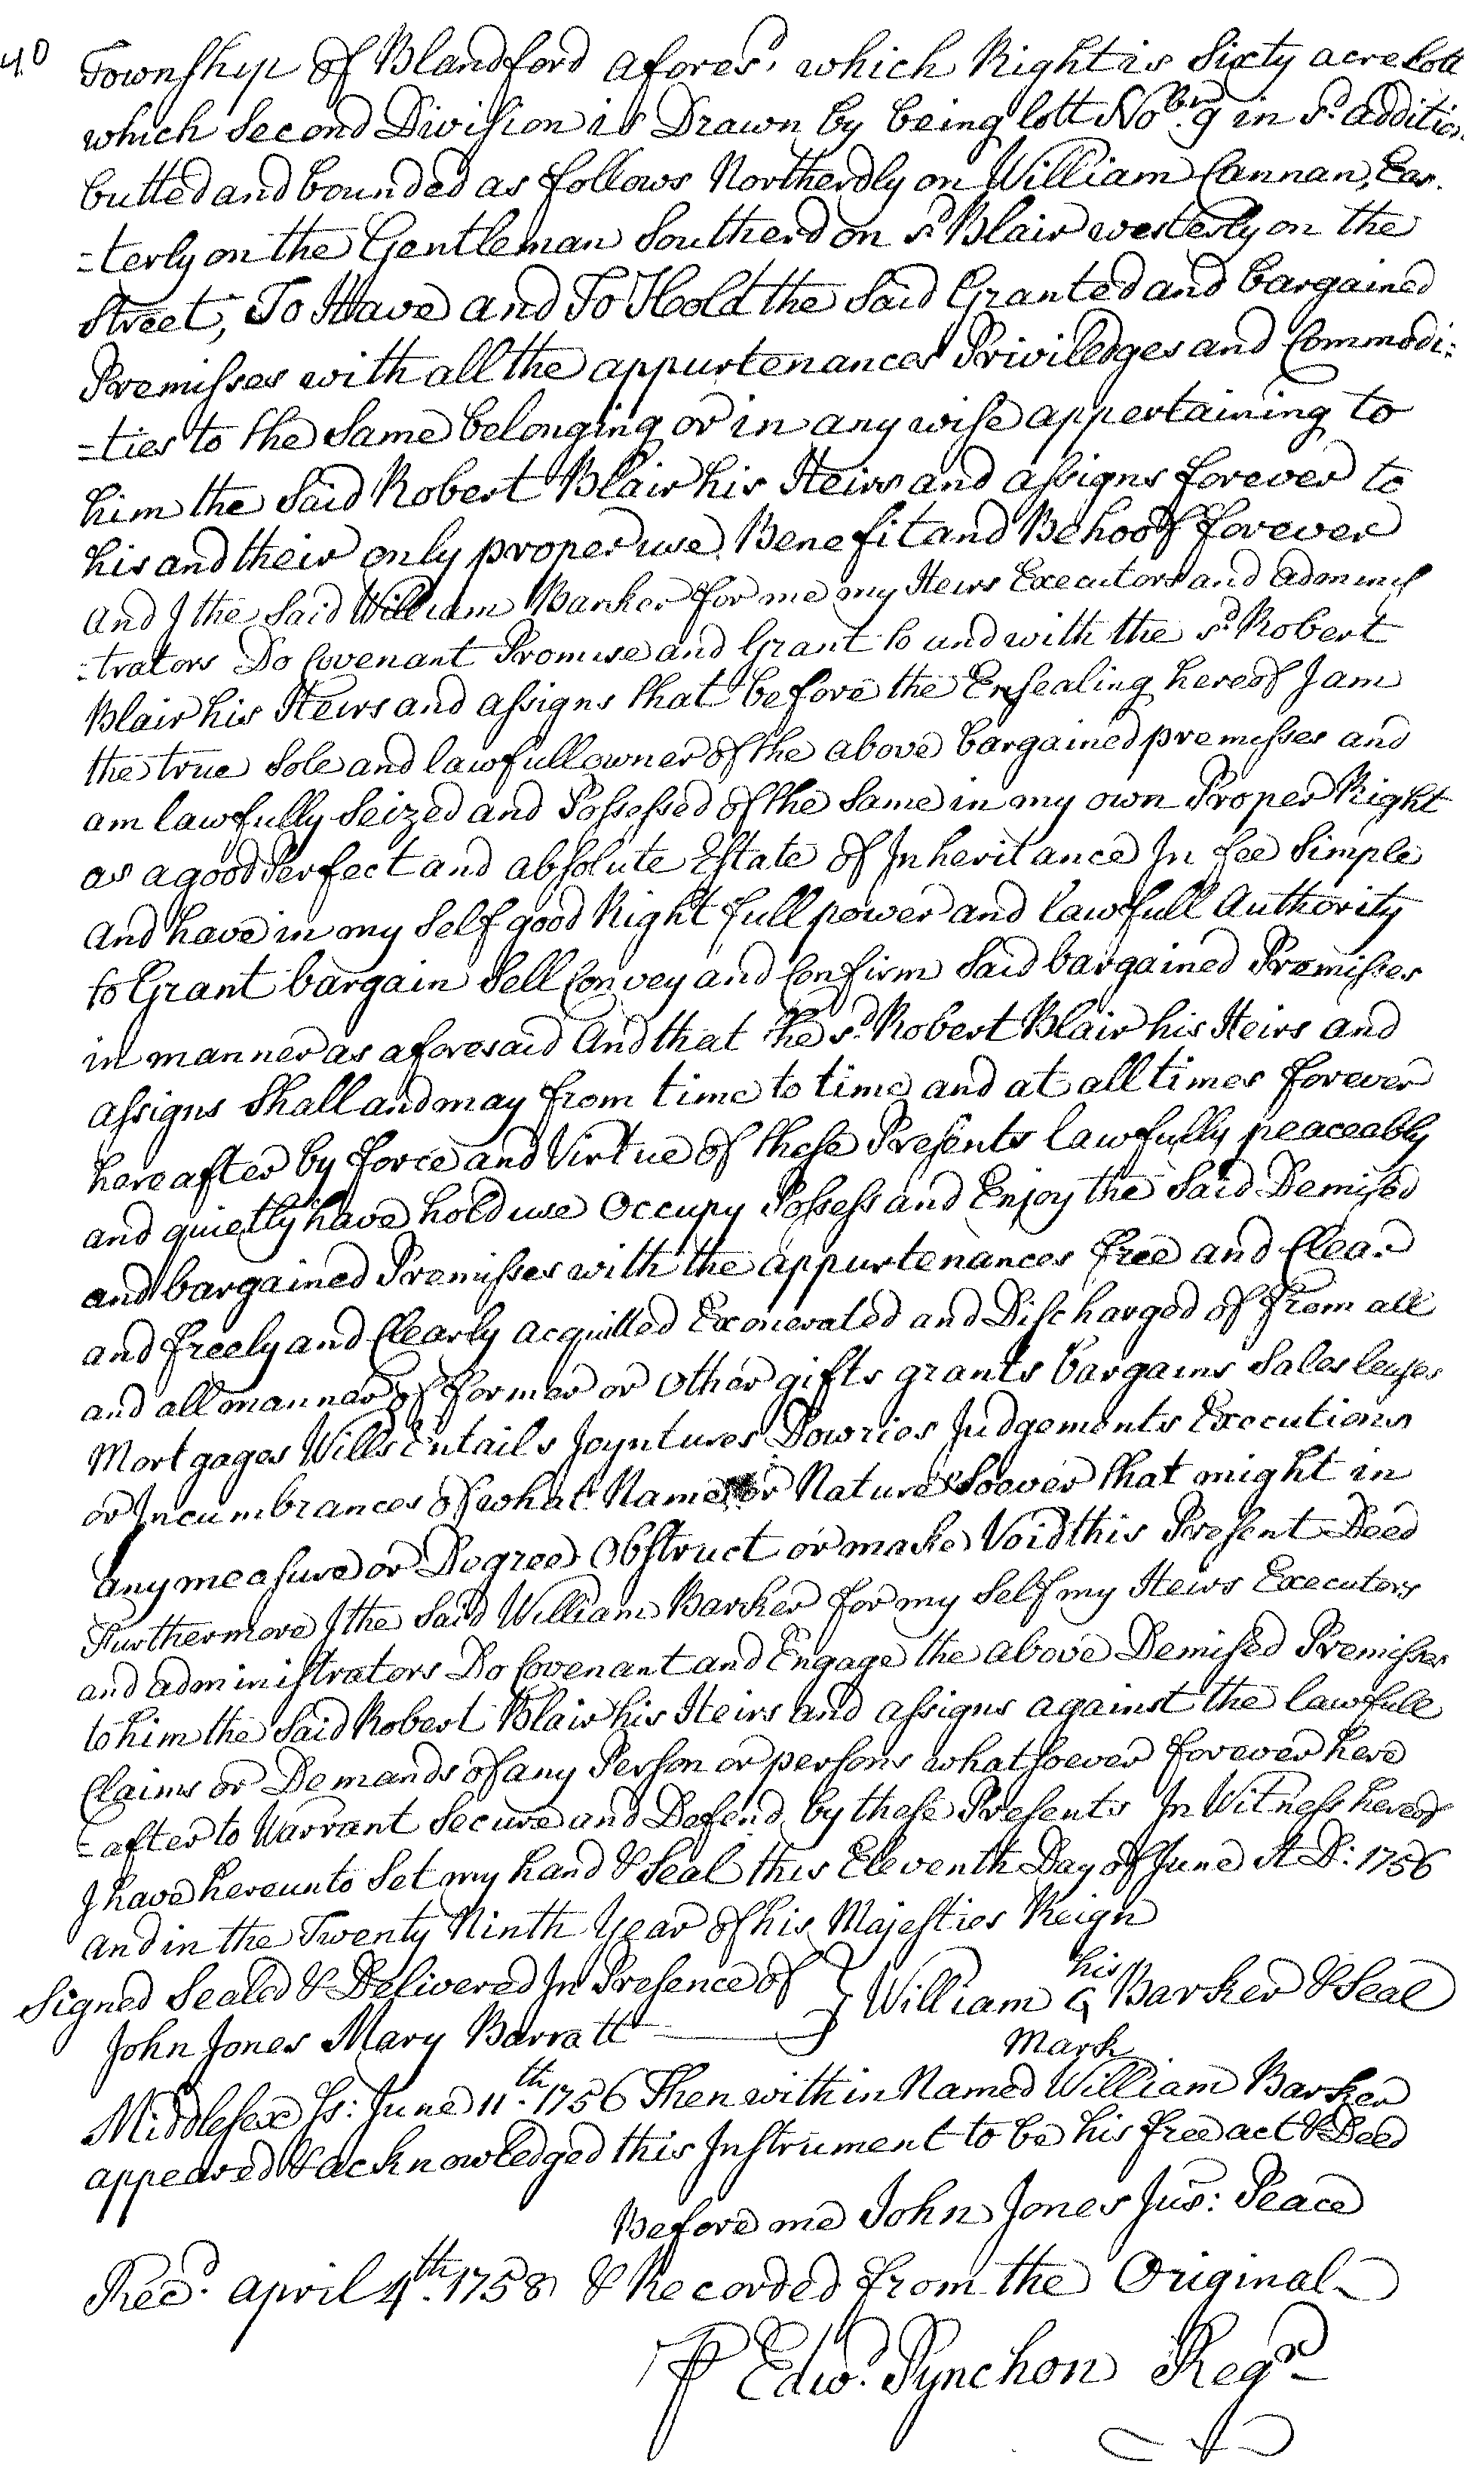 40
Township of Blandford afores.d which Right is Sixty acre Lott
which Second Division is Drawn by being lott No.br 9 in s.d addition
butted and bounded as follows Northerdly on William Cannan, Eas.
=terly on the Gentleman Southerd on s.d Blair westerly on the
Street, To Have and To Hold the Said Granted and bargained
Premisses with all the appurtenances Priviledges and Commodi=
=ties to the Same belonging or in any wise appertaining to
him the Said Robert Blair his Heirs and assigns forever to
his and their only proper use Benefit and Behoof forever
and I the Said William Barker for me my Heirs Executors and adminis
=trators Do Covenant Promise and Grant to and with the s.d Robert
Blair his Heirs and assigns that before the Ensealing hereof I am
the true Sole and lawfull owner of the above bargained premisses and
am lawfully Seized and Possessed of the Same in my own Proper Right
as a good Perfect and absolute Estate of Inheritance In fee Simple
and have in my Self good Right full power and lawfull Authority
to Grant bargain Sell Convey and Confirm Said bargained Premisses
in manner as aforesaid And that he the s.d Robert Blair his Heirs and
assigns Shall and may from time to time and at all times forever
hereafter by force and Virtue of these Presents lawfully peaceably
and quietly have hold use Occupy Possess and Enjoy the Said Demised
and bargained Premisses with the appurtenances free and Clear
and freely and Clearly acquitted Exonerated and Discharged of from all
and all manner of former or other gifts grants bargains Sales leases
Mortgages Wills Entails Joyntures Dowries Judgements Executions
or Incumbrances of what Name or Nature Soever that might in
any measure or Degree Obstruct or make Void this Present Deed
Furthermore I the Said William Barker for my Self my Heirs Executors
and administrators Do Covenant and Engage the above Demised Premisses
to him the Said Robert Blair his Heirs and assigns against the lawfull
Claims or Demands of any Person or persons whatsoever forever here
=after to Warrant Secure and Defend by these Presents In Witness hereof
I have hereunto Set my hand & Seal this Eleventh Day of June A D: 1756
and in the Twenty Ninth Year of his Majesties Reign
Signed Sealed & Delivered In Presence of } William his Barker & Seal
John Jones Mary Barratt Mark
Middlesex Ss: June 11th. 1756 Then within Named William Barker
appeared & acknowledged this Instrument to be his free act & Deed
Before me John Jones Jus: Peace
Rec.d april 4th. 1758 & Recorded from the Original
P Edw.d Pynchon Regr